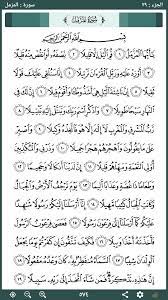 الجزء: ٢٩
سورة : المزمل
سُورَةُ الْمُزَّمِّلِ
بِسْمِ اللَّهِ الرَّحْمَٰنِ الرَّحِيمِ
يَٰٓأَيُّهَا ٱلْمُزَّمِّلُ ١ قُمِ ٱلَّيْلَ إِلَّا قَلِيلًا ٢ نِّصْفَهُۥٓ أَوِ ٱنقُصْ مِنْهُ قَلِيلًا ٣
أَوْ زِدْ عَلَيْهِ وَرَتِّلِ ٱلْقُرْءَانَ تَرْتِيلًا ٤ إِنَّا سَنُلْقِى عَلَيْكَ قَوْلًا
ثَقِيلًا ٥ إِنَّ نَاشِئَةَ ٱلَّيْلِ هِىَ أَشَدُّ وَطْـًٔا وَأَقْوَمُ قِيلًا ٦ إِنَّ لَكَ
فِى ٱلنَّهَارِ سَبْحًا طَوِيلًا ٧ وَٱذْكُرِ ٱسْمَ رَبِّكَ وَتَبَتَّلْ إِلَيْهِ تَبْتِيلًا ٨
رَّبُّ ٱلْمَشْرِقِ وَٱلْمَغْرِبِ لَآ إِلَٰهَ إِلَّا هُوَ فَٱتَّخِذْهُ وَكِيلًا ٩ وَٱصْبِرْ
عَلَىٰ مَا يَقُولُونَ وَٱهْجُرْهُمْ هَجْرًا جَمِيلًا ١٠ وَذَرْنِى وَٱلْمُكَذِّبِينَ
أُو۟لِى ٱلنَّعْمَةِ وَمَهِّلْهُمْ قَلِيلًا ١١ إِنَّ لَدَيْنَآ أَنكَالًا وَجَحِيمًا ١٢
وَطَعَامًا ذَا غُصَّةٍ وَعَذَابًا أَلِيمًا ١٣ يَوْمَ تَرْجُفُ ٱلْأَرْضُ وَٱلْجِبَالُ
وَكَانَتِ ٱلْجِبَالُ كَثِيبًا مَّهِيلًا ١٤ إِنَّآ أَرْسَلْنَآ إِلَيْكُمْ رَسُولًا
شَٰهِدًا عَلَيْكُمْ كَمَآ أَرْسَلْنَآ إِلَىٰ فِرْعَوْنَ رَسُولًا ١٥ فَعَصَىٰ
فِرْعَوْنُ ٱلرَّسُولَ فَأَخَذْنَٰهُ أَخْذًا وَبِيلًا ١٦ فَكَيْفَ تَتَّقُونَ إِن كَفَرْتُمْ
يَوْمًا يَجْعَلُ ٱلْوِلْدَٰنَ شِيبًا ١٧ ٱلسَّمَآءُ مُنفَطِرٌۢ بِهِۦ كَانَ وَعْدُهُۥ مَفْعُولًا ١٨
إِنَّ هَٰذِهِۦ تَذْكِرَةٌ فَمَن شَآءَ ٱتَّخَذَ إِلَىٰ رَبِّهِۦ سَبِيلًا ١٩
٥٧٤